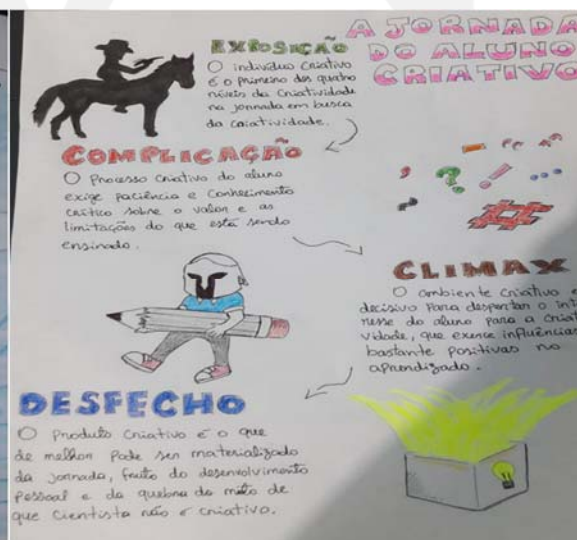 A JORNADA
DO ALUNO
CRIATIVO
EXPOSIÇÃO
O indivíduo Criativo
é o primeiro dos quatro
níveis da Criatividade
na jornada em busca
da criatividade.
COMPLICAÇÃO
O Processo Criativo do aluno
exige paciência e Conhecimento
crítico sobre o valor e as
limitações do que está sendo
ensinado.
, ? ! - " " ...
; #
CLIMAX
O ambiente Criativo é
decisivo para despertar o inte
resse do aluno para a criati
vidade, que exerce influências
bastante positivas no
aprendizado.
DESFECHO
O Produto Criativo é o que
de melhor pode ser materializado
da jornada, fruto do desenvolvimento
pessoal e da quebra do mito de
que Cientista não é criativo.